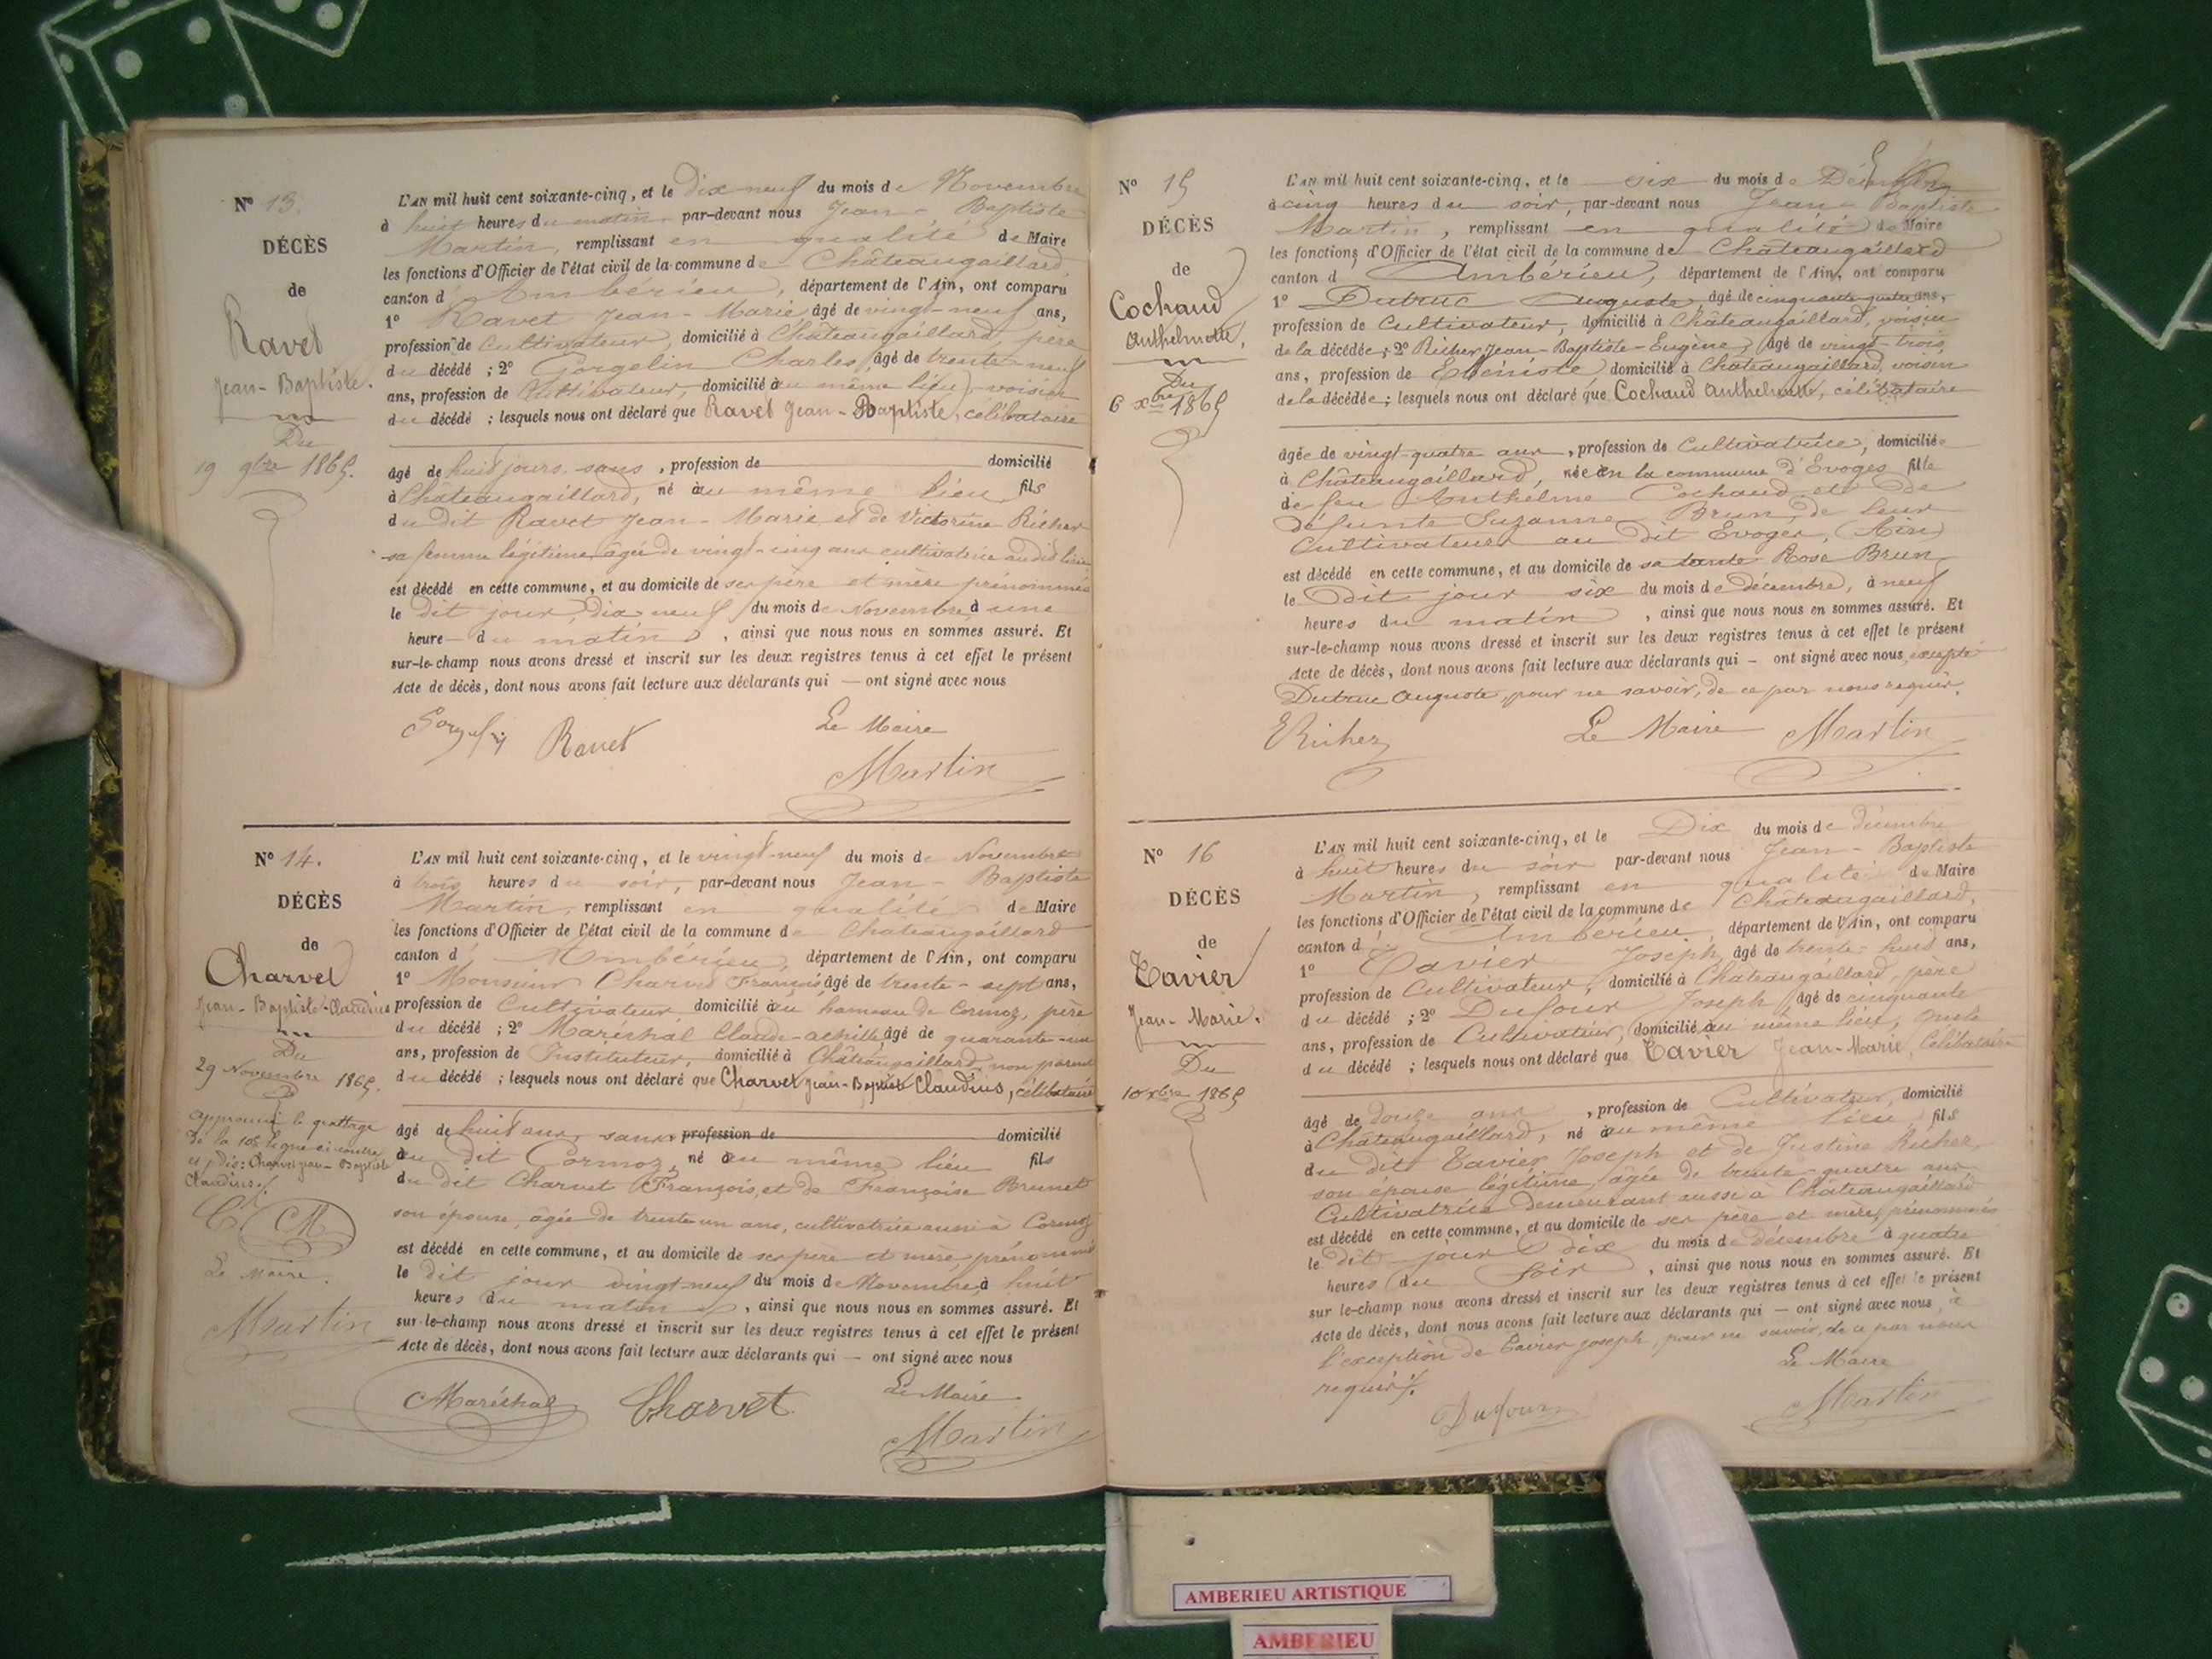 N° 13.
DÉCÈS
de
Ravet
Jean-Baptiste.
Du
19 9bre 1865.
L'AN mil huit cent soixante-cinq, et le dix neuf du mois de Novembre
à huit heures du matin par-devant nous Jean-Baptiste
Martin, remplissant en qualité de Maire
les fonctions d'Officier de l'état civil de la commune de Châteaugaillard,
canton d'Ambérieu, département de l'Ain, ont comparu
1° Ravet Jean-Marie âgé de vingt-neuf ans,
profession de Cultivateur, domicilié à Châteaugaillard, père
du décédé ; 2° Gorgelin Charles, âgé de trente-neuf
ans, profession de Cultivateur, domicilié au même lieu, voisin
du décédé ; lesquels nous ont déclaré que Ravet Jean-Baptiste, célibataire
âgé de huit jours, sans , profession de domicilié
à Châteaugaillard, né au même lieu fils
du dit Ravet Jean-Marie et de Victorine Richer
sa femme légitime, âgée de vingt-cinq ans cultivatrice audit lieu
est décédé en cette commune, et au domicile de ses père et mère prénommés
le dit jour, dix neuf du mois de Novembre à une
heure du matin , ainsi que nous nous en sommes assuré. Et
sur-le-champ nous avons dressé et inscrit sur les deux registres tenus à cet effet le présent
Acte de décès, dont nous avons fait lecture aux déclarants qui — ont signé avec nous
Le Maire
Ravet
Martin
N° 14.
DÉCÈS
de
Charvet
Jean-Baptiste-Claudius
Du
29 Novembre 1865.
approuvé le grattage
de la 10e ligne ci-contre
Charvet Jean-Baptiste
Claudius./.
Ch
CM
Le Maire.
Martin
L'AN mil huit cent soixante-cinq, et le vingt-neuf du mois de Novembre
à trois heures du soir, par-devant nous Jean-Baptiste
Martin, remplissant en qualité de Maire
les fonctions d'Officier de l'état civil de la commune de Chateaugaillard
canton d'Ambérieu, département de l'Ain, ont comparu
1° Monsieur Charvet François âgé de trente-sept ans,
profession de Cultivateur domicilié au hameau de Cormoz, père
du décédé ; 2° Maréchal Claude-Achille, âgé de quarante-un
ans, profession de Instituteur, domicilié à Châteaugaillard, non parent
du décédé ; lesquels nous ont déclaré que Charvet Jean-Baptiste Claudius, célibataire
âgé de huit ans, sans profession de domicilié
au dit Cormoz, né au même lieu fils
du dit Charvet François, et de Françoise Brunet
son épouse, âgée de trente un ans, cultivatrice aussi à Cormoz
est décédé en cette commune, et au domicile de ses père et mère, prénommés
le dit jour vingt-neuf du mois de Novembre, à huit
heures du matin , ainsi que nous nous en sommes assuré. Et
sur-le-champ nous avons dressé et inscrit sur les deux registres tenus à cet effet le présent
Acte de décès, dont nous avons fait lecture aux déclarants qui — ont signé avec nous
Le Maire
Maréchal Charvet
Martin
N° 15
DÉCÈS
de
Cochaud
Anthelmette,
Du
6 xbre 1865
L'AN mil huit cent soixante-cinq, et le six du mois de Décembre
à cinq heures du soir, par-devant nous Jean-Baptiste
Martin, remplissant en qualité de Maire
les fonctions d'Officier de l'état civil de la commune de Châteaugaillard
canton d'Ambérieu, département de l'Ain, ont comparu
1° Dutruc Auguste, âgé de cinquante quatre ans,
profession de Cultivateur, domicilié à Châteaugaillard, voisin
de la décédée ; 2° Richer Jean-Baptiste-Eugène, âgé de vingt-trois
ans, profession de Ebéniste domicilié à Châteaugaillard, voisin
de la décédée ; lesquels nous ont déclaré que Cochaud Anthelmette, célibataire
âgée de vingt-quatre ans , profession de Cultivatrice, domiciliée
à Châteaugaillard, née en la commune d'Évoges fille
de feu Anthelme Cochaud et de
défunte Suzanne Brun, de leur
Cultivateurs au dit Evoges, (Ain)
est décédé en cette commune, et au domicile de sa tante Rose Brun
le dit jour six du mois de décembre, à neuf
heures du matin , ainsi que nous nous en sommes assuré. Et
sur-le-champ nous avons dressé et inscrit sur les deux registres tenus à cet effet le présent
Acte de décès, dont nous avons fait lecture aux déclarants qui — ont signé avec nous, excepté
Dutruc Auguste, pour ne savoir, de ce par nous requis.
ERicher Le Maire Martin
N° 16
DÉCÈS
de
Tavier
Jean-Marie.
Du
10 xbre 1865
L'AN mil huit cent soixante-cinq, et le Dix du mois de décembre
à huit heures du soir par-devant nous Jean-Baptiste
Martin, remplissant en qualité de Maire
les fonctions d'Officier de l'état civil de la commune de Châteaugaillard,
canton d'Ambérieu département de l'Ain, ont comparu
1° Tavier Joseph, âgé de trente-huit ans,
profession de Cultivateur, domicilié à Châteaugaillard, père
du décédé ; 2° Dufour Joseph, âgé de cinquante
ans, profession de Cultivateur, domicilié au même lieu, oncle
du décédé ; lesquels nous ont déclaré que Tavier Jean-Marie, Célibataire
âgé de douze ans , profession de Cultivateur, domicilié
à Châteaugaillard, né au même lieu, fils
du dit Tavier Joseph et de Justine Richer
son épouse légitime, âgée de trente-quatre ans
Cultivatrice demeurant aussi à Châteaugaillard
est décédé en cette commune, et au domicile de ses père et mère, prénommés
le dit jour dix du mois de décembre à quatre
heures du soir , ainsi que nous nous en sommes assuré. Et
sur le-champ nous avons dressé et inscrit sur les deux registres tenus à cet effet le présent
Acte de décès, dont nous avons fait lecture aux déclarants qui — ont signé avec nous, à
l'exception de Tavier Joseph, pour ne savoir, de ce par nous
requis./.
Le Maire
Dufour
Martin
AMBERIEU ARTISTIQUE
AMBERIEU